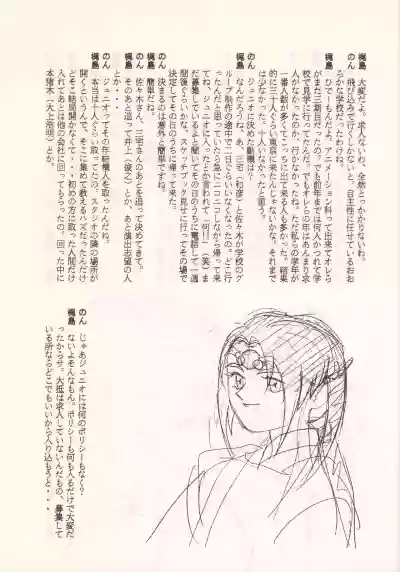 梶島　大変だよ。求人ないわ。全然とっかかりないね。
のん　飛び込みで行くしかないし、自主性に任せているおおらかな学校だったわねえ。
梶島　ひでーもんだよ。アニメーション科って出来てオレらがまだ三期目だったの。でも前年までは何人かまとめて学校で見学に行ってたんだ。でもオレらの年はあんまり求人がなかったのか、なかったね。ただ私らの学年が一番人数が多くてこっちに出て来る人も多かった。結果的に三十人ぐらい東京に来たんじゃないかな。それまでは少なかった。十人いなかったと思う。
のん　ジュニオに決めた動機は？
梶島　なんだろうね。あの三宅（和彦）と佐々木が学校のグループ制作の途中で二日ぐらいいなくなったの。どこ行ったんだと思っていたら急にニコニコしながら帰って来てね、ジュニオに入ったとか言われて「何!!」（笑）まだ募集しているよと聞いてその日のうちに電話して一週間後ぐらいかな、スケッチブック見せに行ってその場で決定してその日のうちに帰って来た。
のん　決まるのは意外と簡単ですね。
梶島　簡単だね。
のん　佐々木さん、三宅さんのあとを追って決めてきて。
梶島　そのあとを追って井上（俊之）とか、あと演出志望の人とか・・・
のん　ジュニオってその年結構人を取ったんだね。
梶島　本当は十人ぐらい取ってたの。スタジオの隣の場所が開くという人で、そこに集めて教えるハズだったんだけどそこ結局開かなくて・・・初めの方に取った人間だけ入れてあとは他の会社に回ってもらったの。回った中に本猪木（大上浩明）とか、
のん　じゃあジュニオには何のポリシーもなく？
梶島　ないよそんなもん。ポリシーも何も入るだけで大変だったからサ。大抵は求人していないんだもの、募集している所ならどこでもいいから入り込もうと・・・